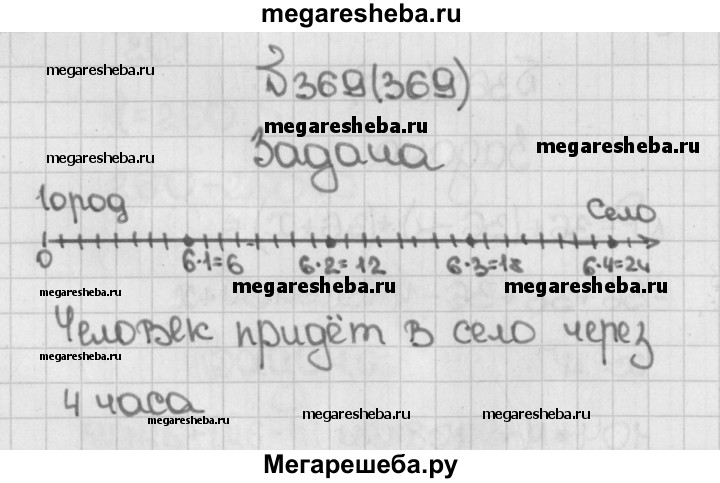 megaresheba.ru
megaresheba.ru
№369(369)
megaresheba.ru
megaresheba.ru
megaresheba.ru
Задача
Город Село
0 6·1=6 6·2=12 6·3=18 6·4=24
megaresheba.ru megaresheba.ru
Человек придёт в село через
megaresheba.ru
4 часа
megaresheba.ru megaresheba.ru megaresheba.ru
Мегарешеба.ру